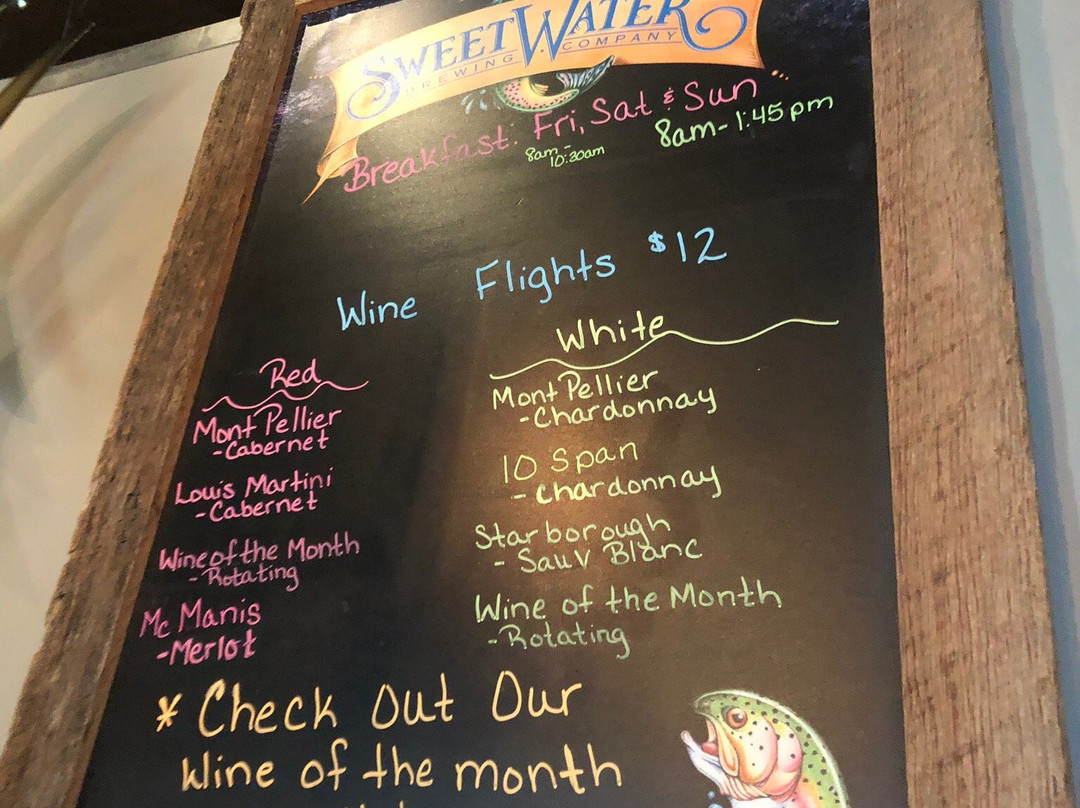 SWEETWATER
BREWING COMPANY
Breakfast: Fri, Sat & Sun
8am-10:30am 8am-1:45pm
Wine Flights $12
Red
Mont Pellier
-Cabernet
Louis Martini
-Cabernet
Wine of the Month
-Rotating
Mc Manis
-Merlot
White
Mont Pellier
-Chardonnay
10 Span
-Chardonnay
Starborough
- Sauv Blanc
Wine of the Month
-Rotating
* Check Out Our
Wine of the month